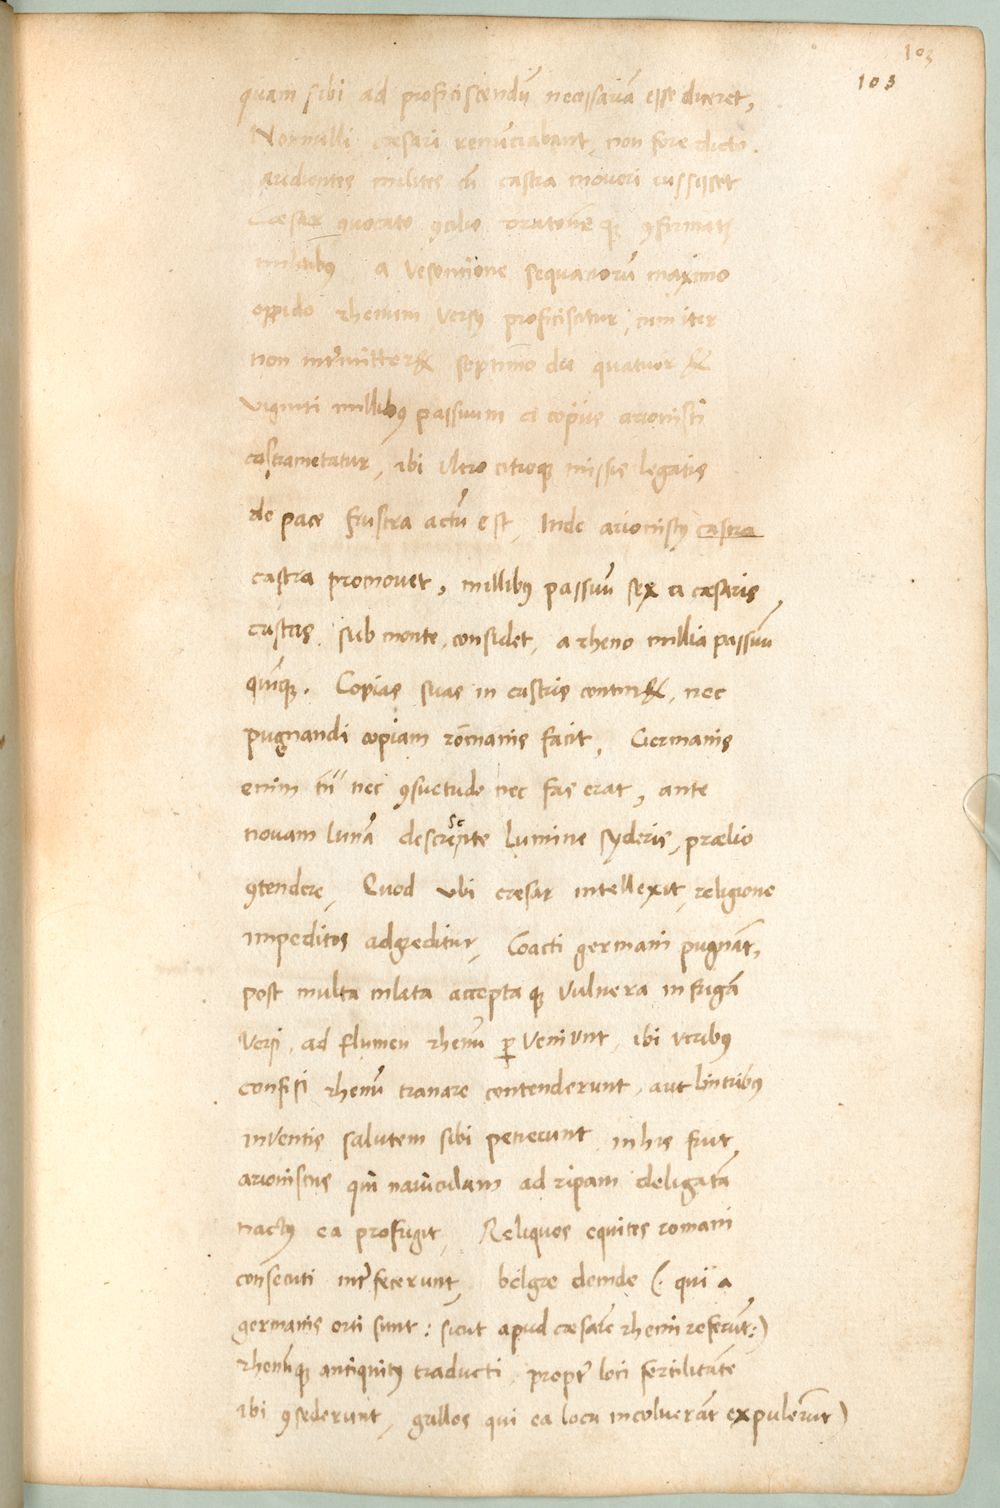 103
103
quam sibi ad proficiscendũ necessariã esse diceret,
Nonnulli cæsari renũciabant, non fore dicto
audientes milites cũ castra moveri iussisset
Cæsar ꝯuocato ꝯcilio oratiõe qꝫ ꝯfirmatꝭ
militibꝰ a vesontione sequanorũ maximo
oppido rhenum versꝰ proficiscitur, cum iter
non int̃mitteret septimo die quatuor et
viginti millibꝰ passuum a copiis ariouisti
castrametatur, ibi ultro citroqꝫ missis legatis
de pace frustra actũ est, Inde ariouistꝰ castra
castra promovet, millibꝰ passuũ sex a cæsaris
castris sub monte, considet, a rheno millia passuũ
quĩqꝫ. Copias suas in castris continet, nec
pugnandi copiam romanis facit, Germanis
enim tũ nec ꝯsuetudo nec fas erat, ante
novam lunã descrescẽte lumine syderis, prælio
ꝯtendere, Quod ubi cæsar intellexit, religione
impeditos adgreditur, Coacti germani pugnãt,
post multa inlata accepta qꝫ vulnera in fugã
versi, ad flumen rhenũ ꝑveniunt, ibi viribꝰ
confisi rhenũ tranare contenderunt, aut lintribꝰ
inventis salutem sibi petierunt, in his fuit
ariouistus qui naviculam ad ripam deligatã
nactꝰ ea profugit, Reliquos equites romani
consecuti int̃fecerunt, belgæ deinde (: qui a
germanis orti sunt: sicut apud cæsarẽ rhemi referũt:)
rhenũqꝫ antiquitꝰ traducti, propt̃ loci fertilitatẽ
ibi ꝯsederunt, gallos qui ea loca incoluerãt expulerũt)